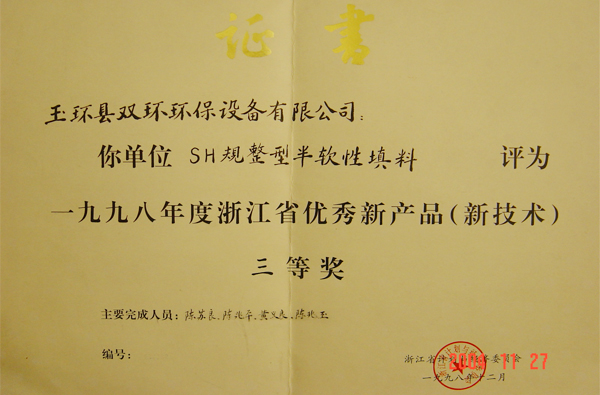 证 書
玉环县双环环保设备有限公司:
你单位 SH规整型半软性填料 评为
一九九八年度浙江省优秀新产品(新技术)
三等奖
主要完成人员: 陈苏良、陈兆 黄 陈 玉
编号:
浙江省计划与经济委员会
一九九八年十二月
11 27